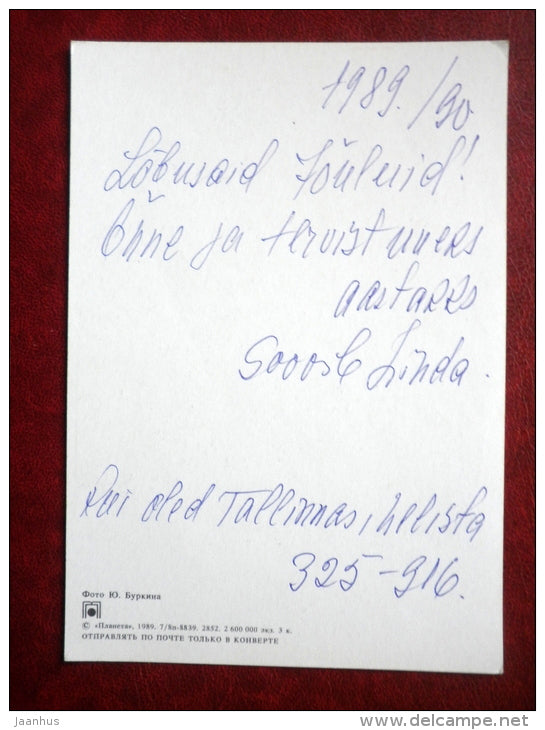 1989./90
Lõbusaid Jõuluid!
Õnne ja tervist uueks
aastaks
Soovib Linda.
Kui oled Tallinnas, helista
325-916.
Фото Ю. Буркина
© «Планета», 1989. 7/8п-8839. 2852. 2 600 000 экз. 3 к.
ОТПРАВЛЯТЬ ПО ПОЧТЕ ТОЛЬКО В КОНВЕРТЕ
jaanhus
www.delcampe.net